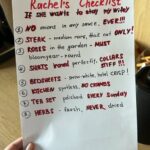 Rachel's Checklist
IF SHE WANTS to stay MY Wifey
① NO onions in any sauce, EVER!!!
② STEAK - medium rare, that cut ONLY!
③ ROSES in the garden - MUST
bloom year-round
④ SHIRTS ironed perfectly, COLLARS STIFF!!!
⑤ BEDSHEETS - snow-white, hotel CRISP!
⑥ KITCHEN spotless, NO CRUMBS
⑦ TEA SET polished EVERY Sunday
⑧ HERBS - fresh, NEVER dried